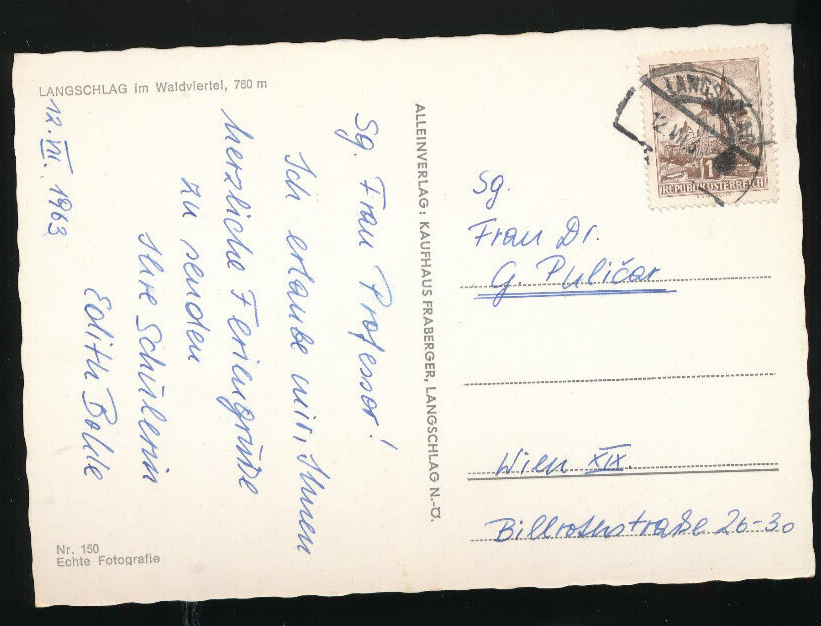 LANGSCHLAG im Waldviertel, 760 m
12. VII. 1963
Sg. Frau Professor!
Ich erlaube mir, Ihnen
herzliche Feriengrüße
zu senden
Ihre Schülerin
Edith
Nr. 150
Echte Fotografie
ALLEINVERLAG: KAUFHAUS FRABERGER, LANGSCHLAG N.-Ö.
1
REPUBLIK ÖSTERREICH
Sg.
Frau Dr.
G. Puličar
Wien XIX.
Billrothstraße 26-30